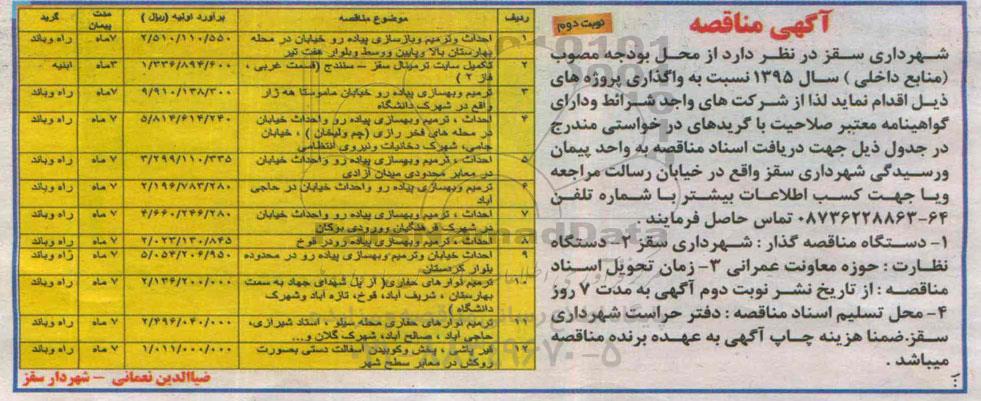 آگهی مناقصه
نوبت دوم
شهرداری سقز در نظر دارد از محل بودجه مصوب
(منابع داخلی) سال ۱۳۹۵ نسبت به واگذاری پروژه های
ذیل اقدام نماید لذا از شرکت های واجد شرائط ودارای
گواهینامه معتبر صلاحیت با گریدهای درخواستی مندرج
در جدول ذیل جهت دریافت اسناد مناقصه به واحد پیمان
ورسیدگی شهرداری سقز واقع در خیابان رسالت مراجعه
ویا جهت کسب اطلاعات بیشتر با شماره تلفن
۰۸۷۳۶۲۲۸۸۶۳-۶۴ تماس حاصل فرمایند .
۱- دستگاه مناقصه گذار : شهرداری سقز ۲- دستگاه
نظارت : حوزه معاونت عمرانی ۳- زمان تحویل اسناد
مناقصه : از تاریخ نشر نوبت دوم آگهی به مدت ۷ روز
۴- محل تسلیم اسناد مناقصه : دفتر حراست شهرداری
سقز.ضمنا هزینه چاپ آگهی به عهده برنده مناقصه
میباشد .
ردیف موضوع مناقصه برآورد اولیه (ریال) مدت پیمان گرید
۱ احداث وترمیم وبازسازی پیاده رو خیابان در محله ۲/۵۱۰/۱۱۰/۵۵۰ ۷ماه راه وباند
بهارستان بالا وپایین ووسط وبلوار هفت تیر
۲ تکمیل سایت ترمینال سقز – سنندج (قسمت غربی ، ۱/۳۳۶/۸۹۴/۶۰۰ ۳ماه ابنیه
فاز ۲ )
۳ ترمیم وبهسازی پیاده رو خیابان ماموستا هه ژار ۹/۹۱۰/۱۳۸/۳۰۰ ۷ماه راه وباند
واقع در شهرک دانشگاه
۴ احداث ، ترمیم وبهسازی پیاده رو واحداث خیابان ۵/۸۱۴/۶۱۴/۲۴۰ ۷ ماه راه وباند
در محله های فخر رازی (چم ولیخان ) ، خیابان
جامی، شهرک دخانیات ونیروی انتظامی
۵ احداث ، ترمیم وبهسازی پیاده رو واحداث خیابان ۳/۲۹۹/۱۱۰/۳۳۵ ۷ ماه راه وباند
در معابر محدودی میدان آزادی
۶ ترمیم وبهسازی پیاده رو واحداث خیابان در حاجی ۲/۱۹۶/۷۸۳/۲۸۰ ۷ ماه راه وباند
آباد
۷ احداث ، ترمیم وبهسازی پیاده رو واحداث خیابان ۴/۶۶۰/۲۴۶/۲۸۰ ۷ ماه راه وباند
در شهرک فرهنگیان وورودی بوکان
۸ احداث ، ترمیم وبهسازی پیاده رودر قوخ ۲/۰۲۳/۱۳۰/۸۴۵ ۷ ماه راه وباند
۹ احداث خیابان وترمیم وبهسازی پیاده رو در محدوده ۵/۰۵۴/۲۰۶/۹۵۰ ۷ ماه راه وباند
بلوار کردستان
۱۰ ترمیم نوارهای حفاری( از پل شهدای جهاد به سمت ۲/۱۳۶/۲۰۰/۰۰۰ ۷ ماه راه وباند
بهارستان ، شریف آباد، قوخ، تازه آباد وشهرک
دانشگاه )
۱۱ ترمیم نوارهای حفاری محله سیلو ، استاد شیرازی، ۲/۴۹۶/۰۴۰/۰۰۰ ۷ ماه راه وباند
حاجی آباد ، صالح آباد، شهرک گلان و...
۱۲ قیر پاشی ، پخش وکوبیدن آسفالت دستی بصورت ۱/۰۱۱/۰۰۰/۰۰۰ ۷ ماه راه وباند
روکش در معابر سطح شهر
ضیاالدین نعمانی – شهردار سقز